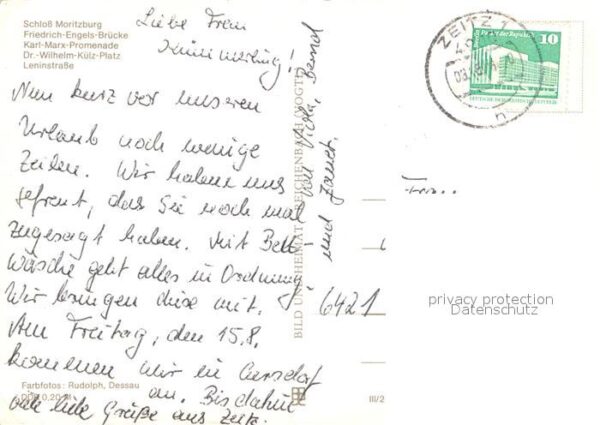 Schloß Moritzburg
Friedrich-Engels-Brücke
Karl-Marx-Promenade
Dr.-Wilhelm-Külz-Platz
Leninstraße
Liebe Frau
Nun kurz vor unseren
Urlaub noch wenige
Zeilen. Wir haben uns
gefreut, das Sie noch mal
zugesagt haben. Mit Bett-
wäsche geht alles in Ordnung
Wir bringen diese mit.
Am Freitag, den 15.8.
kommen wir in Gersdorf
an. Bis dahin
viele liebe Grüße aus Zeitz.
von Viola, Bernd
und
BILD UND HEIMAT REICHENBACH (VOGTL)
Farbfotos: Rudolph, Dessau
DDR 0,20 M
III/2
ZEITZ 1
10
DEUTSCHE DEMOKRATISCHE REPUBLIK
6421
privacy protection
Datenschutz